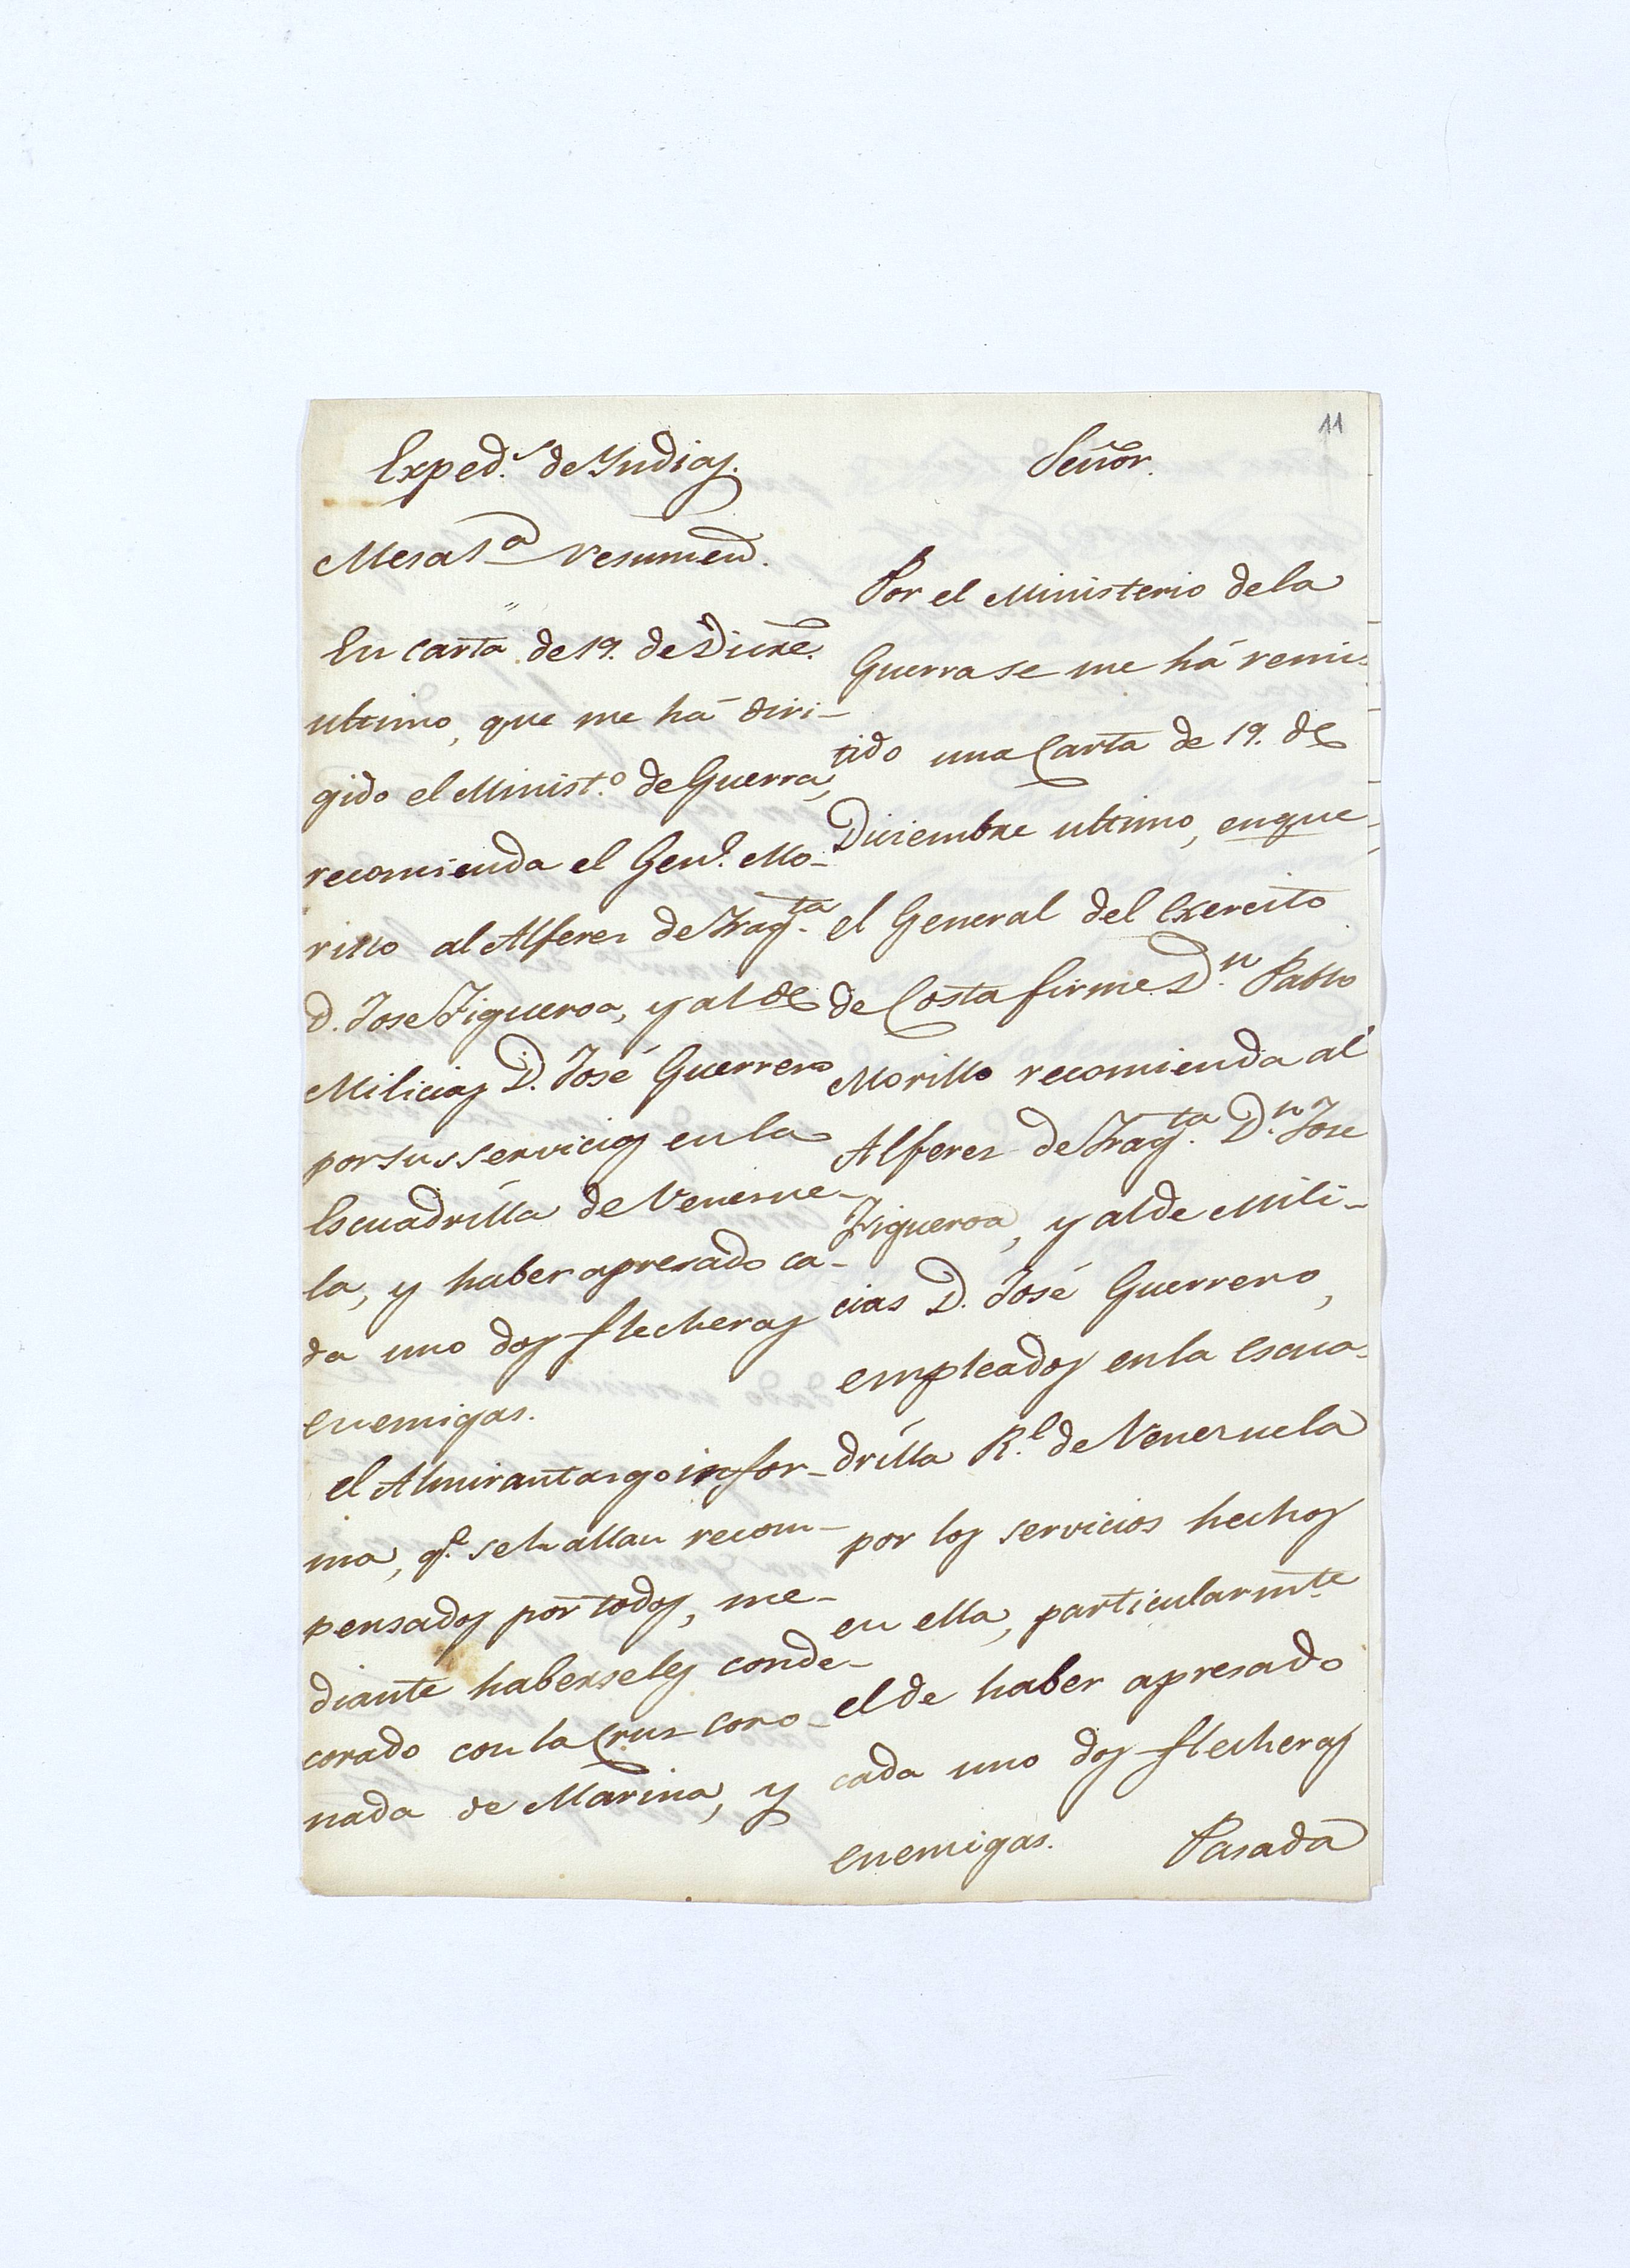 11
Exped.s de Yndias.
Mesa 1ª Resumen.
En carta de 19. de Dicre.
ultimo, que me há diri-
gido el Minist.º de Guerra,
recomienda el Gen.l Mo-
rillo al Alferez de Frag.ta
D. Jose Figueroa, y al de
Milicias D. José Guerrero
por sus servicios en la
Escuadrilla de Venezue-
la, y haber apresado ca-
da uno dos flecheras
enemigas.
el Almirantazgo infor-
ma, q.e se hallan recom-
pensados por todos, me-
diante haberseles conde-
corado con la Cruz Coro-
nada de Marina, y
Señor.
Por el Ministerio de la
Guerra se me há remi-
tido una Carta de 19. de
Diciembre ultimo, en que
el General del Exercito
de Costa firme D.n Pablo
Morillo recomienda al
Alferez de Frag.ta D.n Jose
Figueroa, y al de Mili-
cias D. José Guerrero,
empleados en la Escua-
drilla R.l de Venezuela
por los servicios hechos
en ella, particularmte.
el de haber apresado
cada uno dos flecheras
enemigas. Pasada